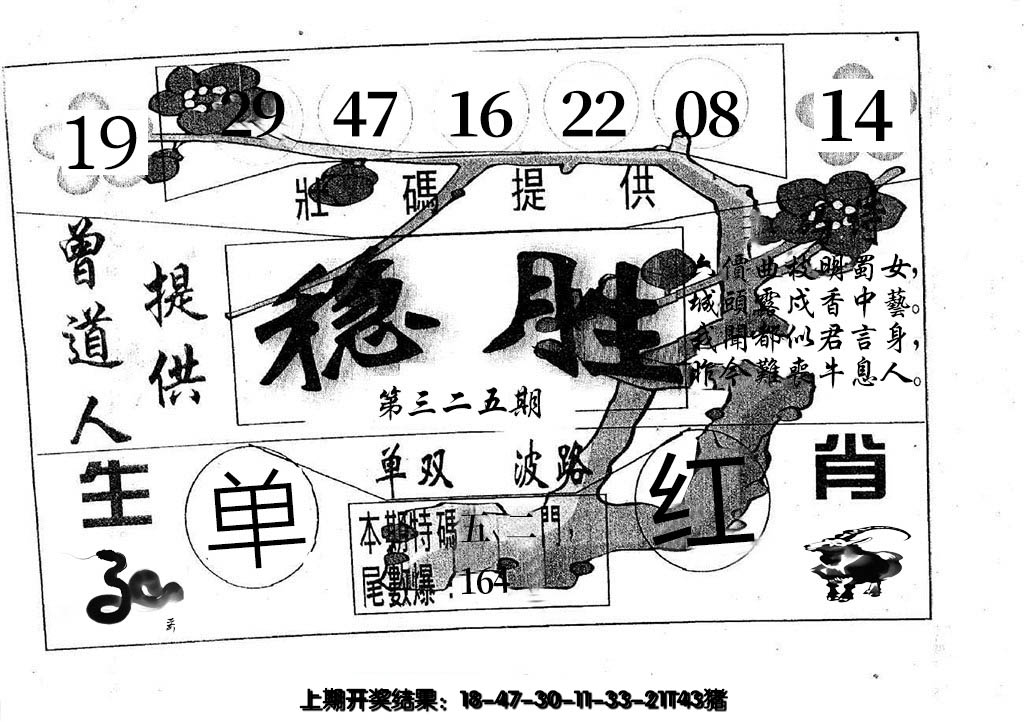 19 29 47 16 22 08 14
壯碼提供
曾道人
提供
稳胜
第三二五期
價曲技明蜀女，
城頭露成香中藝。
我聞都似君言身，
昨今難喪牛息人。
单双 波路
生
单
红
肖
本期特碼五、二門，
尾數爆：164
上期开奖结果：18-47-30-11-33-21T43猪